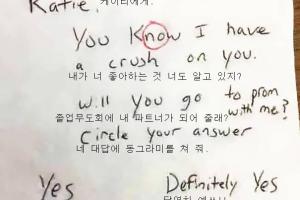 Katie,
케이티에게.
You Know I have
a crush on you.
내가 너 좋아하는 것 너도 알고 있지?
will you go to prom
with me?
졸업무도회에 내 파트너가 되어 줄래?
Circle your answer
네 대답에 동그라미를 쳐 줘.
Yes
Definitely Yes